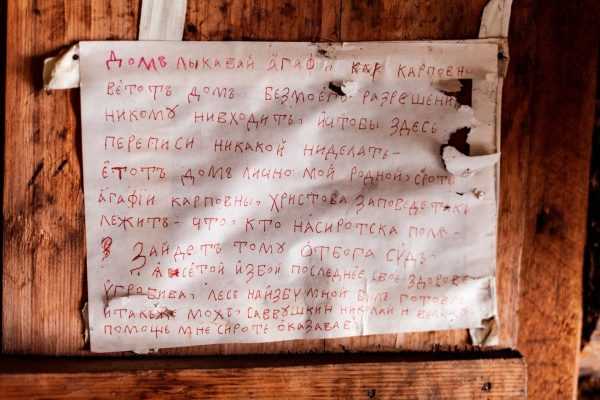 ДОМЪ ЛЫКАВАЙ АГАФИ КАР КАРПОВНЫ
ВЕТОТЪ ДОМЪ БЕЗМОЕГО РАЗРЕШЕНИ
НИКОМУ НИВХОДИТЬ. ИЧТОБЫ ЗДЕСЬ
ПЕРЕПИСИ НИКАКОЙ НИДЕЛАТЬ-
ЕТОТЪ ДОМЪ ЛИЧНО МОЙ РОДНОЙ, СИРОТЫ
АГАФИИ КАРПОВНЫ, ХРИСТОВА ЗАПОВЕДЬ ТАКЪ
ЛЕЖИТЬ- ЧТО- КТО НАСИРОТСКА ПОЛЕ-
ЗАЙДЕТЪ ТОМУ ОТБОГА СУДЪ-
Я СЕТОЙ ИЗБОЙ ПОСЛЕДНЕЕ СВОЕ ЗДОРОВЕ-
УГРОБИВА, ЛЕСЪ НАИЗБУ МНОЙ БЫЛЪ ГОТОВ
ИТАКЬЖЕ МОХЪ. САВВУШКИН НИКОЛАЙ Н
ПОМОЩЬ МНЕ СИРОТЕ ОКАЗАВАЕ